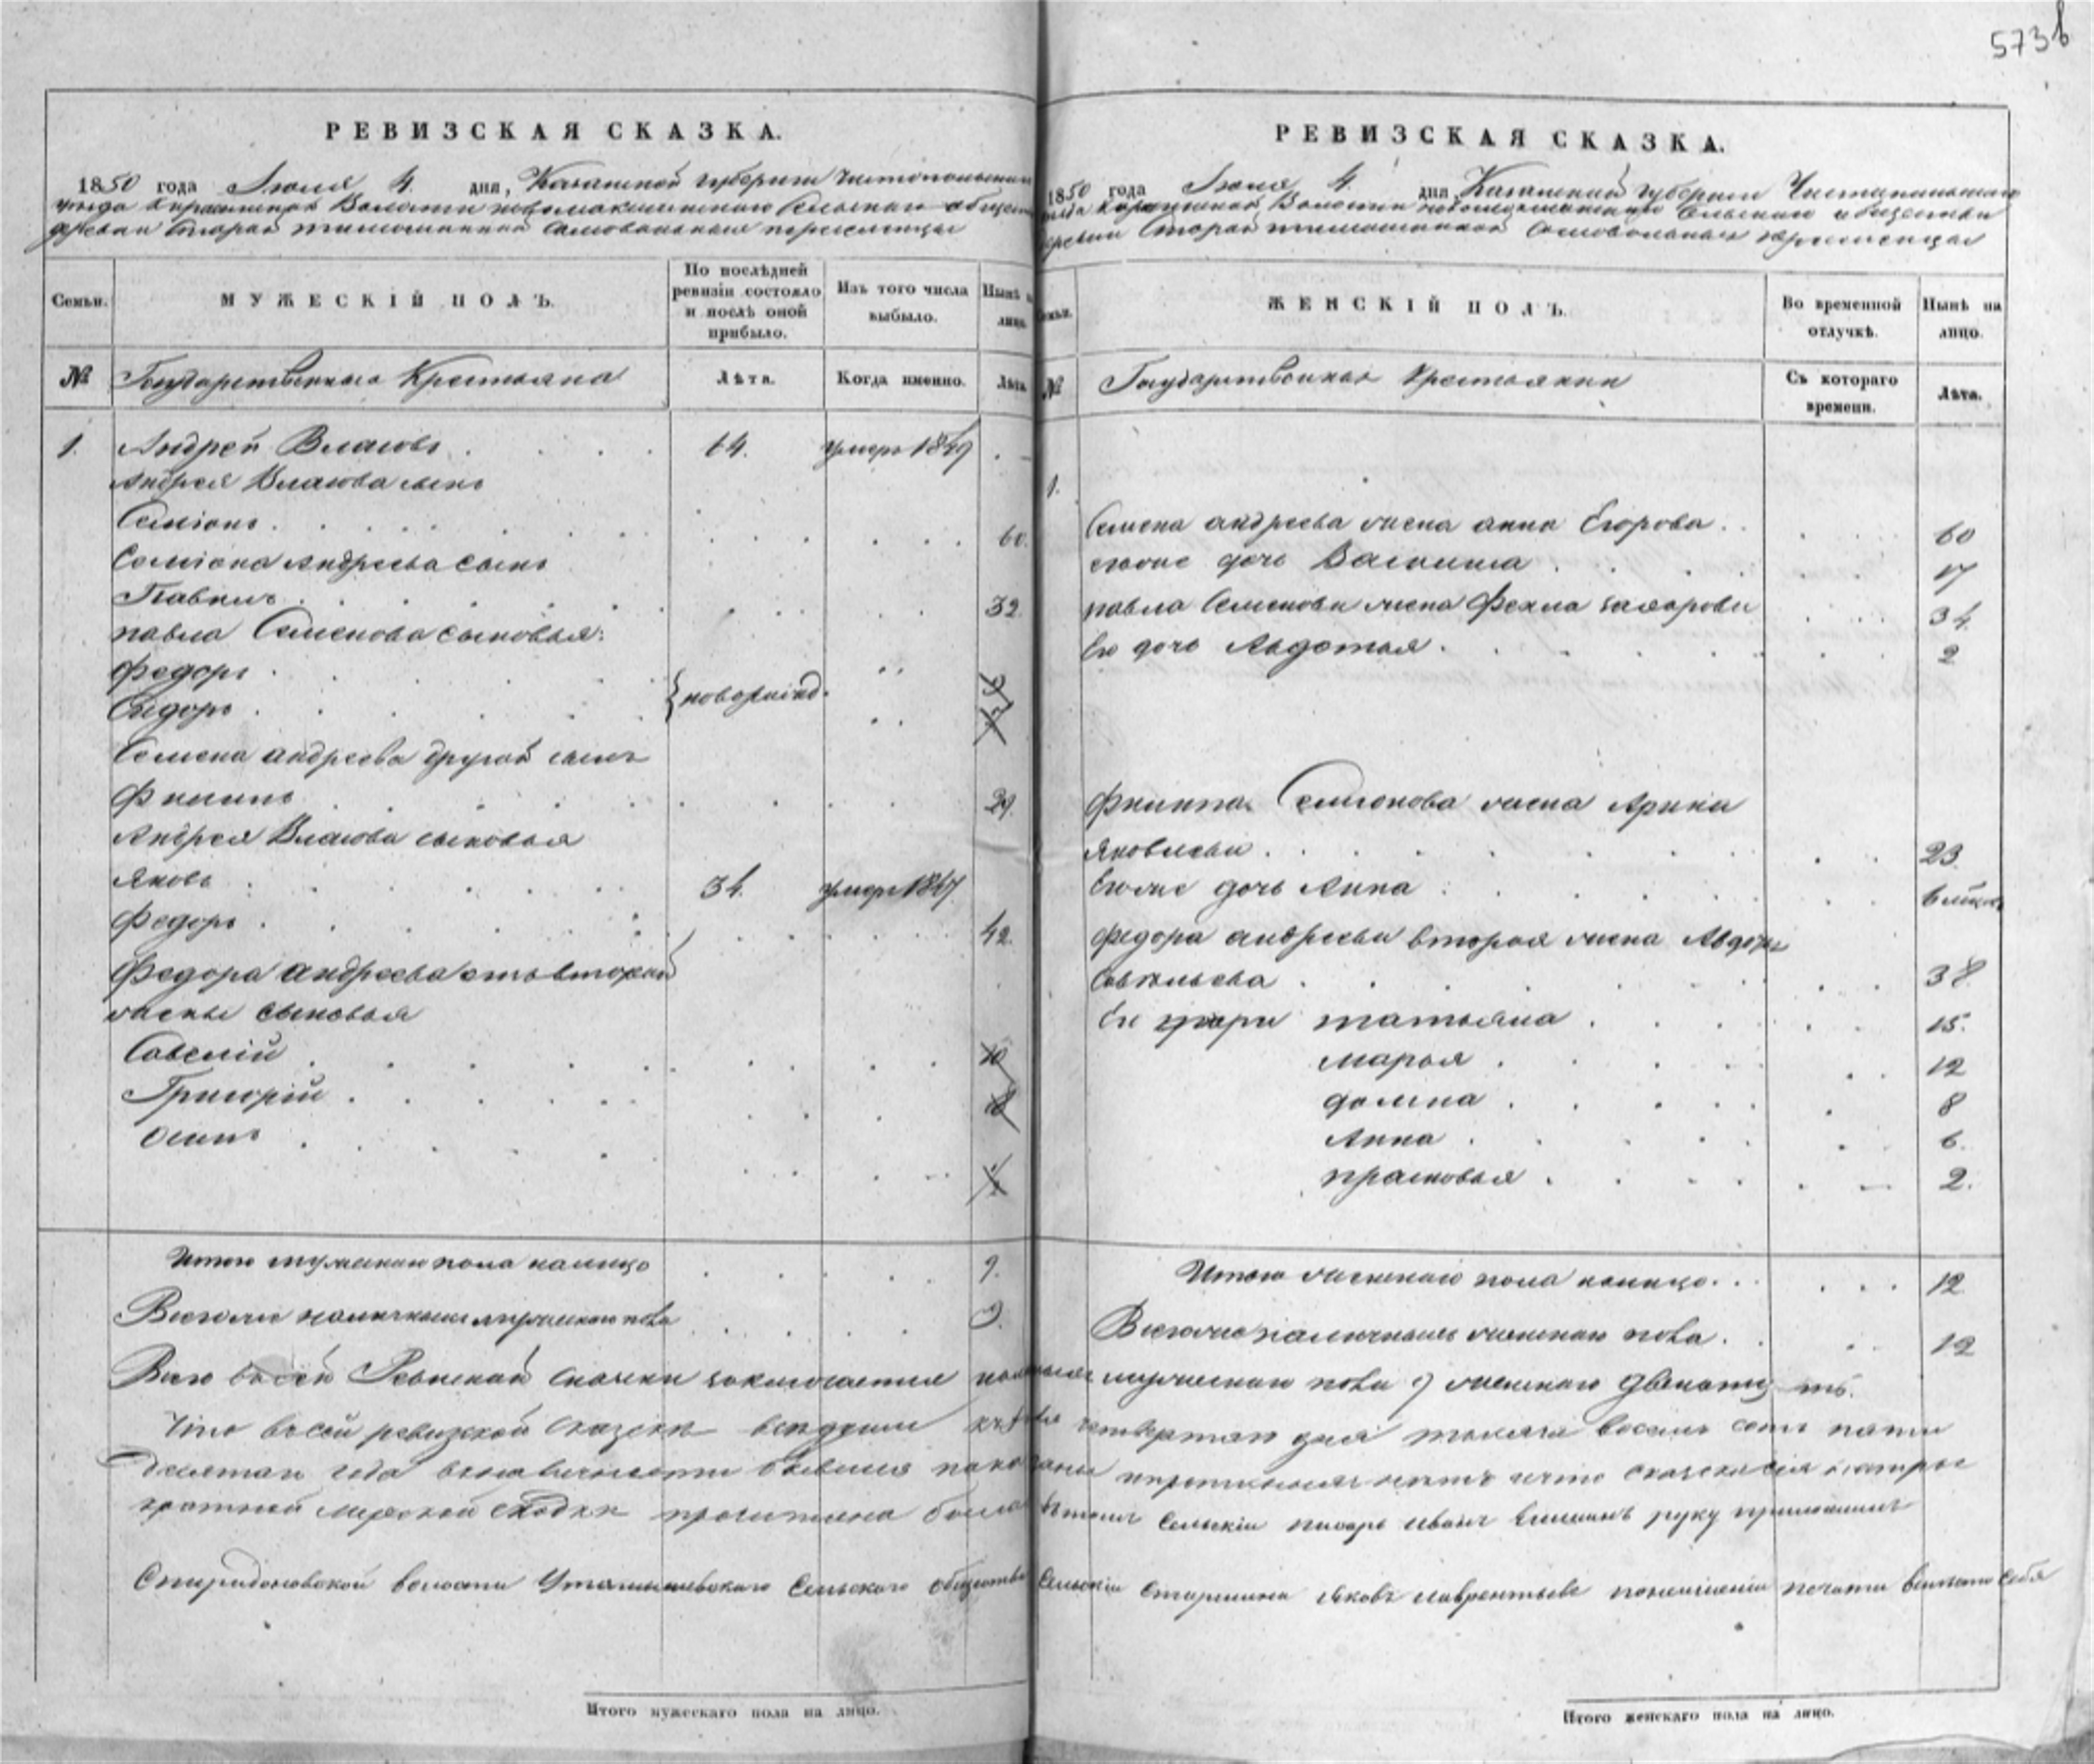 573 в
РЕВИЗСКАЯ СКАЗКА.
1850 года Июля 4. дня, Казанской губернии Чистопольскаго
уезда Волости Сельскаго общества
деревни Старой самовольныя переселенцы
Семьи.
МУЖЕСКІЙ ПОЛЪ.
По послѣдней ревизіи состояло и послѣ оной прибыло.
Изъ того числа выбыло.
Нынѣ на лицо.
№ Государственныя Крестьяна
Лѣта.
Когда именно.
Лѣта.
1. Андрей Власовъ 64. умеръ 1849
Андрея Власова сынъ
Семіонъ 60.
Семіона Андреева сынъ
Павилъ 32.
павла Семенова сыновья:
федоръ
Сидоръ новорожд.
Семена андреева другой сынъ
Филипъ 29.
Андрея Власова сыновья
Яковъ 34. умеръ 1847.
Федоръ 42.
Федора андреева отъ второй
жены сыновья
Савелій 10
Григорій
Осипъ
Итого мужескаго пола налицо 9.
Всегоже наличныхъ мужескаго пола 9.
РЕВИЗСКАЯ СКАЗКА.
1850 года Июля 4. дня Казанской губернии Чистопольскаго
уезда Волости Сельскаго общества
деревни Старой самовольныя переселенцы
Семьи.
ЖЕНСКІЙ ПОЛЪ.
Во временной отлучкѣ.
Нынѣ на лицо.
№ Государственныя Крестьянки
Съ котораго времени.
Лѣта.
1.
Семена андреева жена анна Егорова 60
егоже дочь Василиса 17
павла Семенова жена Фекла захарова 34
Ево дочь Авдотья 2
Филипа Семионова жена Арина
Яковлева 23.
Егоже дочь Анна
федора андреева вторая жена Авдотья
Савельева 38.
Ее дочери татьяна 15.
марья 12
домна 8
Анна 6.
прасковья 2.
Итого женскаго пола налицо 12
Всегоже наличныхъ женскаго пола 12
Всего въ сей Ревизской сказки заключается наличныхъ мужескаго пола 9 женскаго двенатцать.
Что въ сей ревизской сказки четвертаго дня тысяча восемь сотъ пяти
десятаго года
мирской сходки прочитана была втомъ Сельскій писарь иванъ руку приложилъ
Спиридоновской волости Сельского общества Сельскій Старшина Яковъ лаврентьевъ печати
Итого мужескаго пола на лицо.
Итого женскаго пола на лицо.